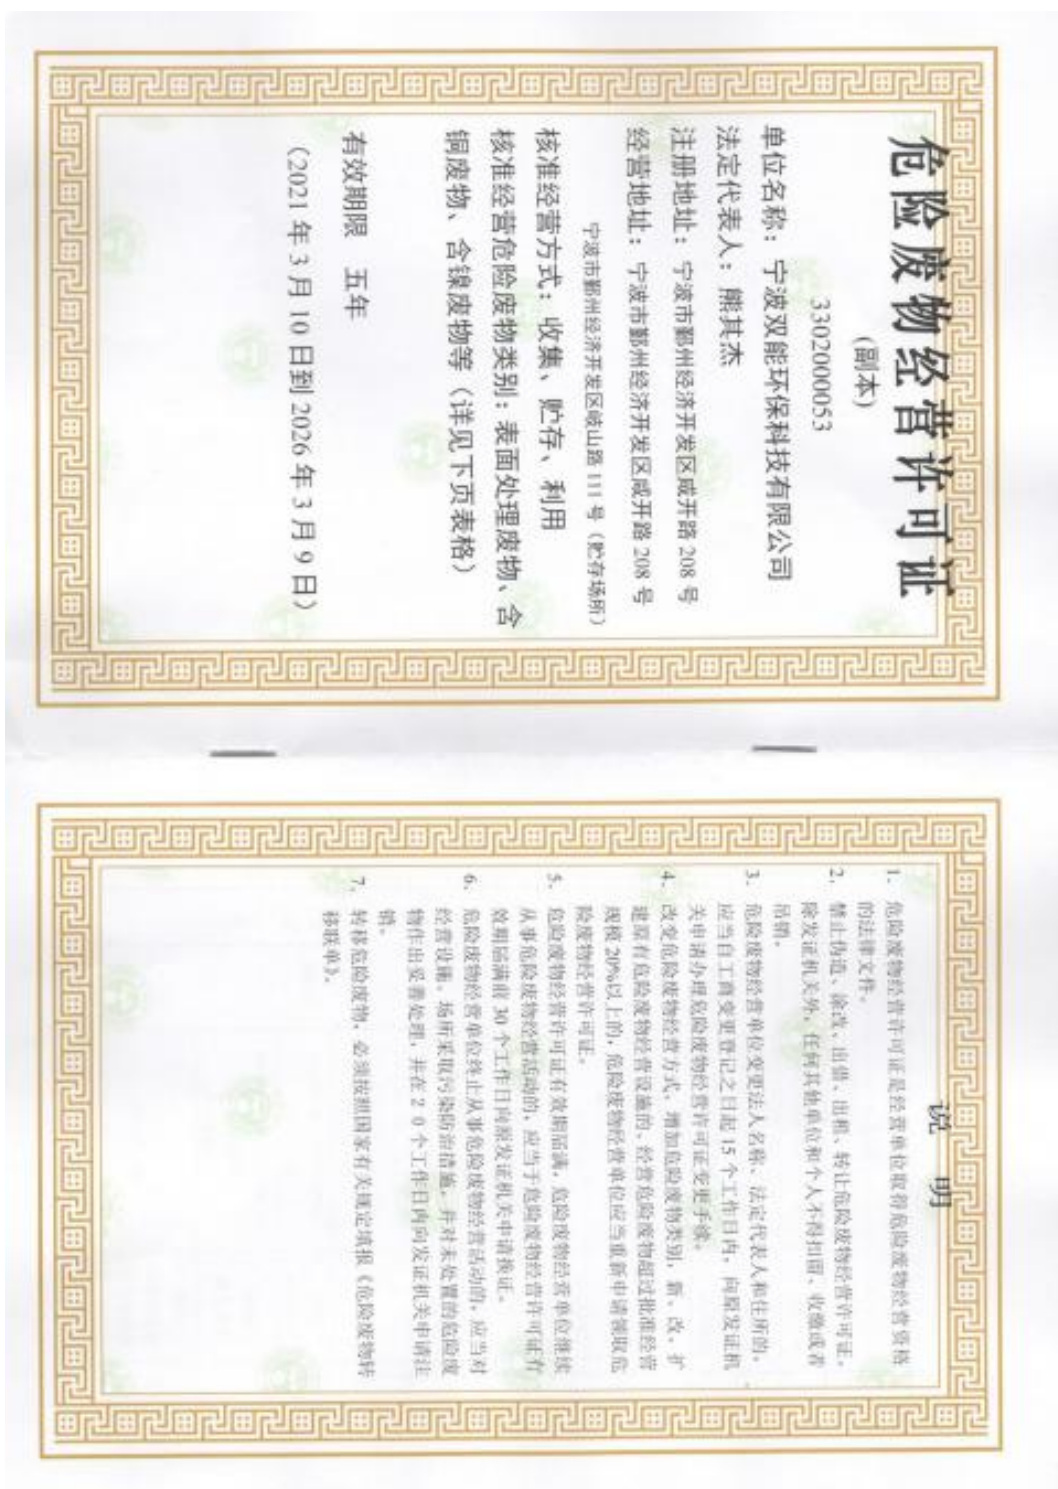 危险废物经营许可证
(副本)
3302000053
单位名称：宁波双能环保科技有限公司
法定代表人：熊其杰
注册地址：宁波市鄞州经济开发区咸开路 208 号
经营地址：宁波市鄞州经济开发区咸开路 208 号
宁波市鄞州经济开发区岐山路 111 号（贮存场所）
核准经营方式：收集、贮存、利用
核准经营危险废物类别：表面处理废物、含
铜废物、含镍废物等（详见下页表格）
有效期限 五年
（2021 年 3 月 10 日到 2026 年 3 月 9 日）
说 明
1. 危险废物经营许可证是经营单位取得危险废物经营资格
的法律文件。
2. 禁止伪造、涂改、出借、出租、转让危险废物经营许可证。
除发证机关外，任何其他单位和个人不得扣留、收缴或者
吊销。
3. 危险废物经营单位变更法人名称、法定代表人和住所的，
应当自工商变更登记之日起 15 个工作日内，向原发证机
关申请办理危险废物经营许可证变更手续。
4. 改变危险废物经营方式、增加危险废物类别，新、改、扩
建原有危险废物经营设施的、经营危险废物超过批准经营
规模 20%以上的，危险废物经营单位应当重新申请领取危
险废物经营许可证。
5. 危险废物经营许可证有效期届满，危险废物经营单位继续
从事危险废物经营活动的，应当于危险废物经营许可证有
效期届满前 30 个工作日向原发证机关申请换证。
6. 危险废物经营单位终止从事危险废物经营活动的，应当对
经营设施、场所采取污染防治措施，并对未处置的危险废
物作出妥善处理，并在２０个工作日内向发证机关申请注
销。
7. 转移危险废物，必须按照国家有关规定填报《危险废物转
移联单》。